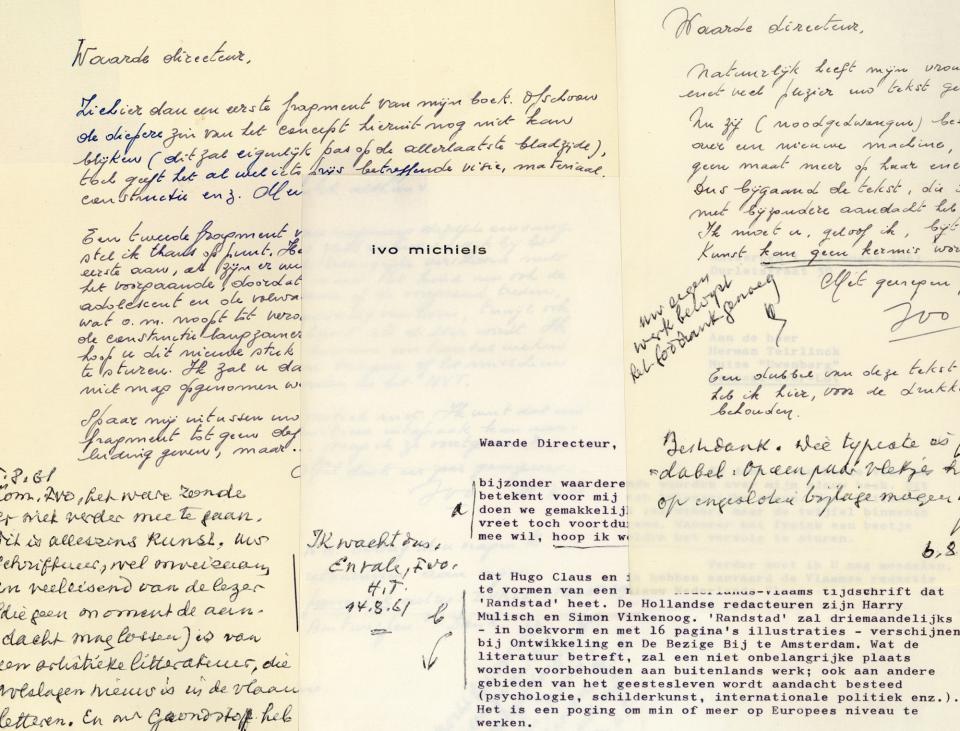 Waarde directeur,
Ziehier dan een eerste fragment van mijn boek. Ofschoon
de diepere zin van het concept hieruit nog niet kan
blijken (dit zal eigenlijk pas op de allerlaatste bladzijde),
toch geeft het al wel iets prijs betreffende visie, materiaal,
constructie enz.
Een tweede fragment
stel ik thans op punt.
eerste aan, al zijn er
het voorgaande, doordat
adolescent en de
wat o.m. noopt tot
de constructie
hoop u dit nieuwe stuk
te sturen. Ik zal u da
niet mag opgenomen
Spaar mij intussen uw
fragment tot geen
leiding geven, maar
8.61
Ivo, het ware zonde
er niet verder mee te gaan.
it is alleszins kunst. Uw
en veeleisend van de lezer
(die geen moment de aan-
dacht mag lossen) is van
een artistieke litteratuur, die
volslagen nieuw is in de vlaam
letteren. En uw Grondstof heb
ivo michiels
Ik wacht dus.
Entale, Ivo.
H.T.
14.8.61
a
b
Waarde Directeur,
bijzonder waardere
betekent voor mij
doen we gemakkelijk
vreet toch voortdu
mee wil, hoop ik w
dat Hugo Claus en i
te vormen van een nieuw Nederlands-Vlaams tijdschrift dat
'Randstad' heet. De Hollandse redacteuren zijn Harry
Mulisch en Simon Vinkenoog. 'Randstad' zal driemaandelijks
- in boekvorm en met 16 pagina's illustraties - verschijnen
bij Ontwikkeling en De Bezige Bij te Amsterdam. Wat de
literatuur betreft, zal een niet onbelangrijke plaats
worden voorbehouden aan buitenlands werk; ook aan andere
gebieden van het geestesleven wordt aandacht besteed
(psychologie, schilderkunst, internationale politiek enz.).
Het is een poging om min of meer op Europees niveau te
werken.
Waarde directeur,
Natuurlijk heeft mijn vrou
met veel plezier uw tekst ge
Nu zij (noodgedwongen) bes
over een nieuwe machine,
geen maat meer op haar ene
Dus bijgaand de tekst, die i
met bijzondere aandacht heb
Ik moet u, geloof ik, bijt
Kunst kan geen kermis wor
Met genegen,
Ivo
uw eigen
werk beloopt
genoeg
Aan de heer
Herman Teirlinck
Een dubbel van deze tekst
heb ik hier, voor de drukk
behouden.
Bestedank. Die typcote is
dabel. Op een paar vlekjes
op ingesloten bijlage mogen
6.8